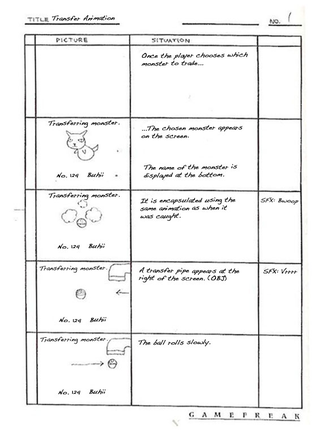 TITLE Transfer Animation
NO. 1
PICTURE
SITUATION
Once the player chooses which
monster to trade...
Transferring monster.
...The chosen monster appears
on the screen.
The name of the monster is
displayed at the bottom.
No. 129 Buhii
Transferring monster.
It is encapsulated using the
same animation as when it
was caught.
SFX: Bwoop
No. 129 Buhii
Transferring monster.
A transfer pipe appears at the
right of the screen. (OBJ)
SFX: Vrrrr
No. 129 Buhii
Transferring monster.
The ball rolls slowly.
No. 129 Buhii
GAMEFREAK